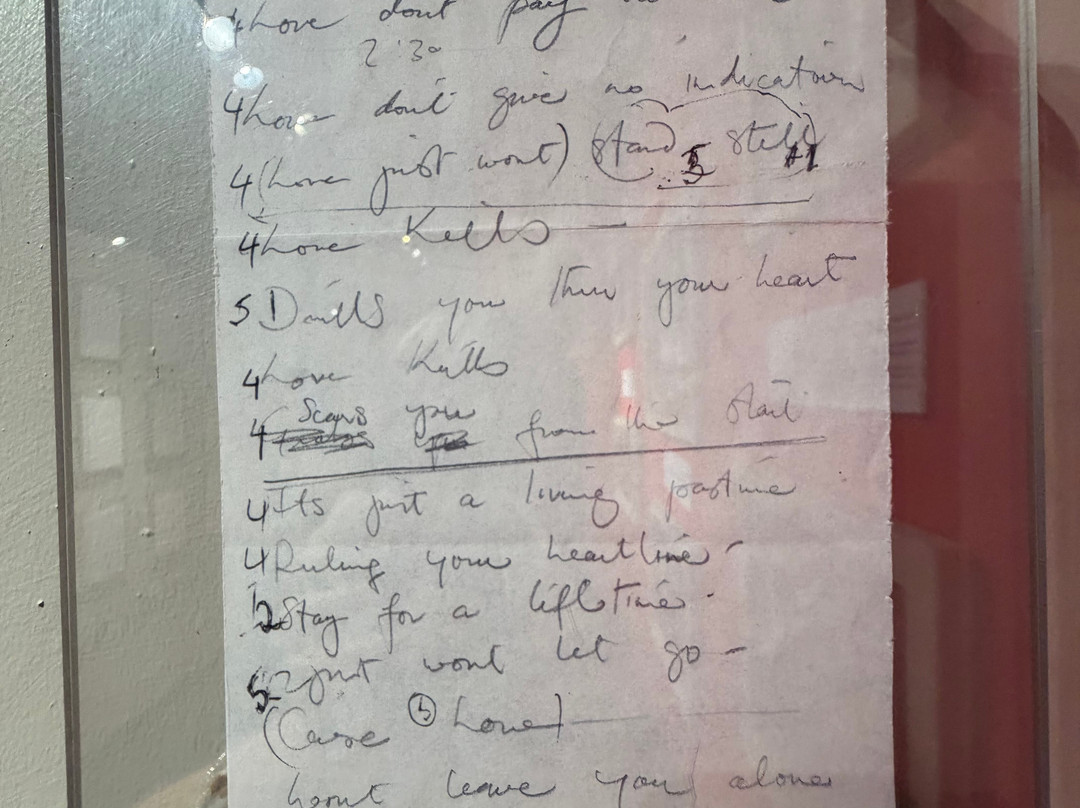 4 Love dont pay
2:30
4 Love don't give no indication
4 (Love just wont) (stand still)
4 Love Kills —
5 Drills you thru your heart
4 Love Kills
4 Scars you from the start
4 Its just a living pastime
4 Ruling your heartline -
2 Stay for a lifetime -
5 just wont let go -
(Cause Love)
wont leave you alone